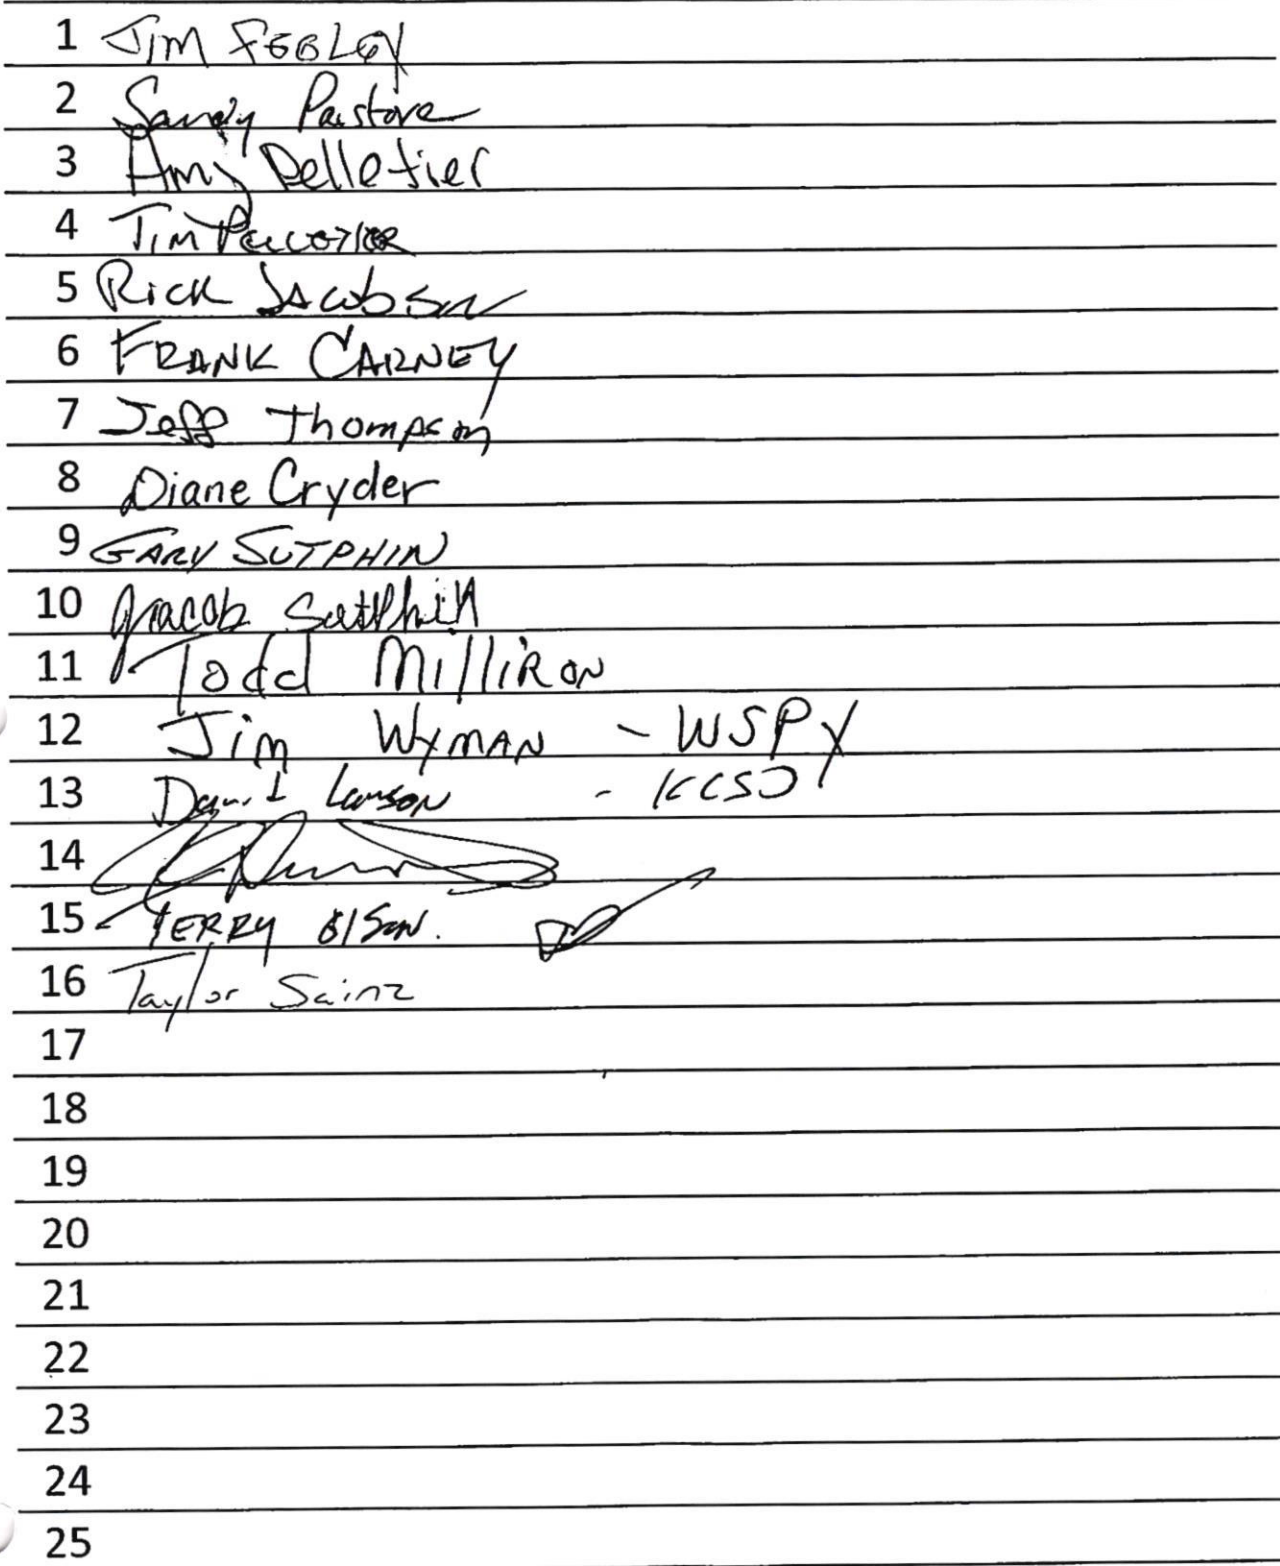 1 Jim FEELEY
2 Sandy Pastore
3 Amy Pelletier
4 Tim Pelletier
5 Rick Jacobson
6 FRANK CARNEY
7 Jeff Thompson
8 Diane Cryder
9 GARY SUTPHIN
10 Jracob Sutphin
11 Todd MilliRON
12 Jim WYMAN - WSPY
13 David Lawson - KCSJ
14
15 JERRY OlSON.
16 Taylor Sainz
17
18
19
20
21
22
23
24
25